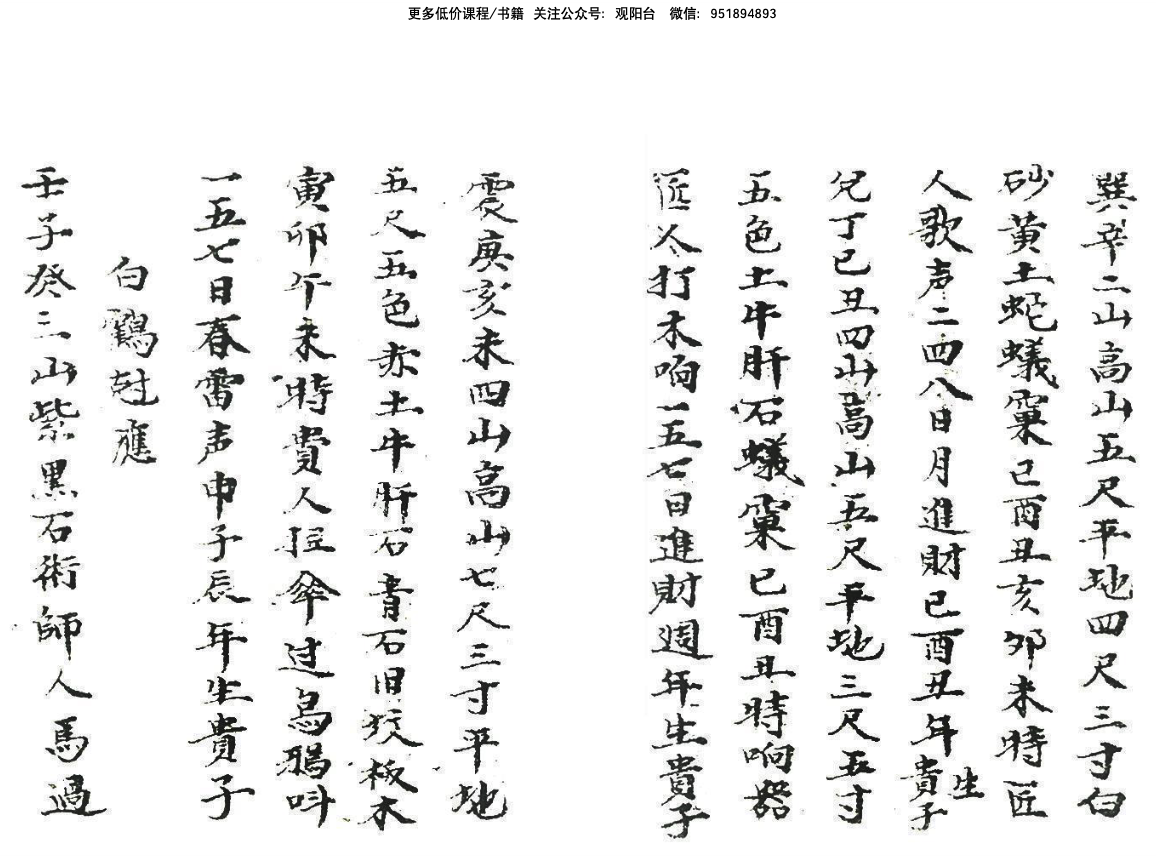 更多低价课程/书籍 关注公众号: 观阳台 微信: 951894893
巽辛二山高山五尺平地四尺三寸白
砂黄土蛇蟻窠巳酉丑亥卯未時匠
人歌声二四八日月進財巳酉丑年生貴子
兌丁巳丑四山高山五尺平地三尺五寸
五色土牛肝石蟻窠巳酉丑時响器
匠人打木响一五七日進財週年生貴子
震庚亥未四山高山七尺三寸平地
五尺五色赤土牛肝石青石旧坟板木
寅卯午未時貴人拉傘过烏鴉叫
一五七日春雷声申子辰年生貴子
白鶴尅應
壬子癸三山紫黑石術師人馬過